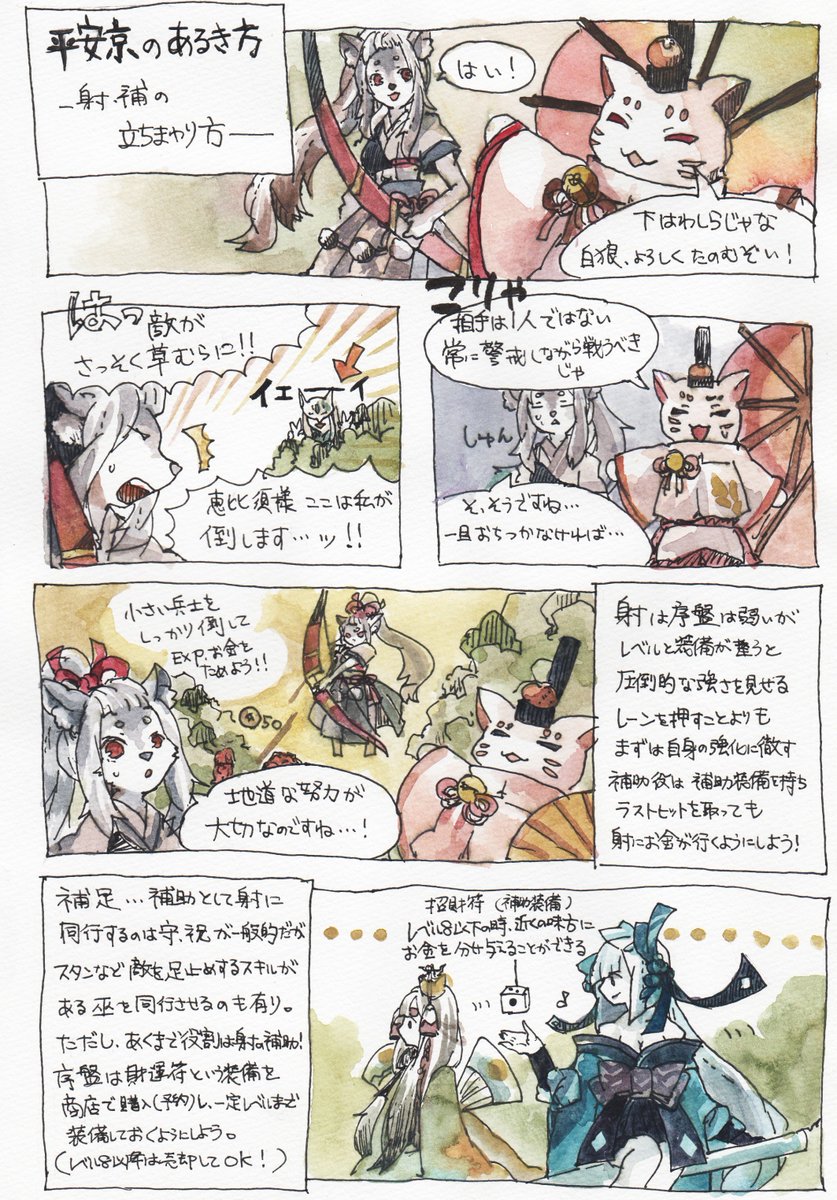 平安京のあるき方
―射・補の
立ちまわり方―
はい!
下はわしらじゃな
白狼、よろしくたのむぞい!
はっ
敵が
さっそく草むらに!!
イェーイ
恵比須様 ここは私が
倒します…ッ!!
こりゃ
相手は1人ではない
常に警戒しながら戦うべき
じゃ
しゅん
そ、そうですね…
一旦おちつかなければ…
小さい兵士を
しっかり倒して
EXP、お金を
ためよう!!
50
地道な努力が
大切なのですね…!
射は序盤は弱いが
レベルと装備が整うと
圧倒的な強さを見せる
レーンを押すことよりも
まずは自身の強化に徹す
補助役は補助装備を持ち
ラストヒットを取っても
射にお金が行くようにしよう!
補足…補助として射に
同行するのは守、祝が一般的だが
スタンなど敵を足止めするスキルが
ある巫を同行させるのも有り。
ただし、あくまで役割は射の補助!
序盤は財運符という装備を
商店で購入(予約)し、一定レベルまで
装備しておくようにしよう。
(レベル8以降は売却してOK!)
招財符(補助装備)
レベル8以下の時、近くの味方に
お金を分け与えることができる
…
♪